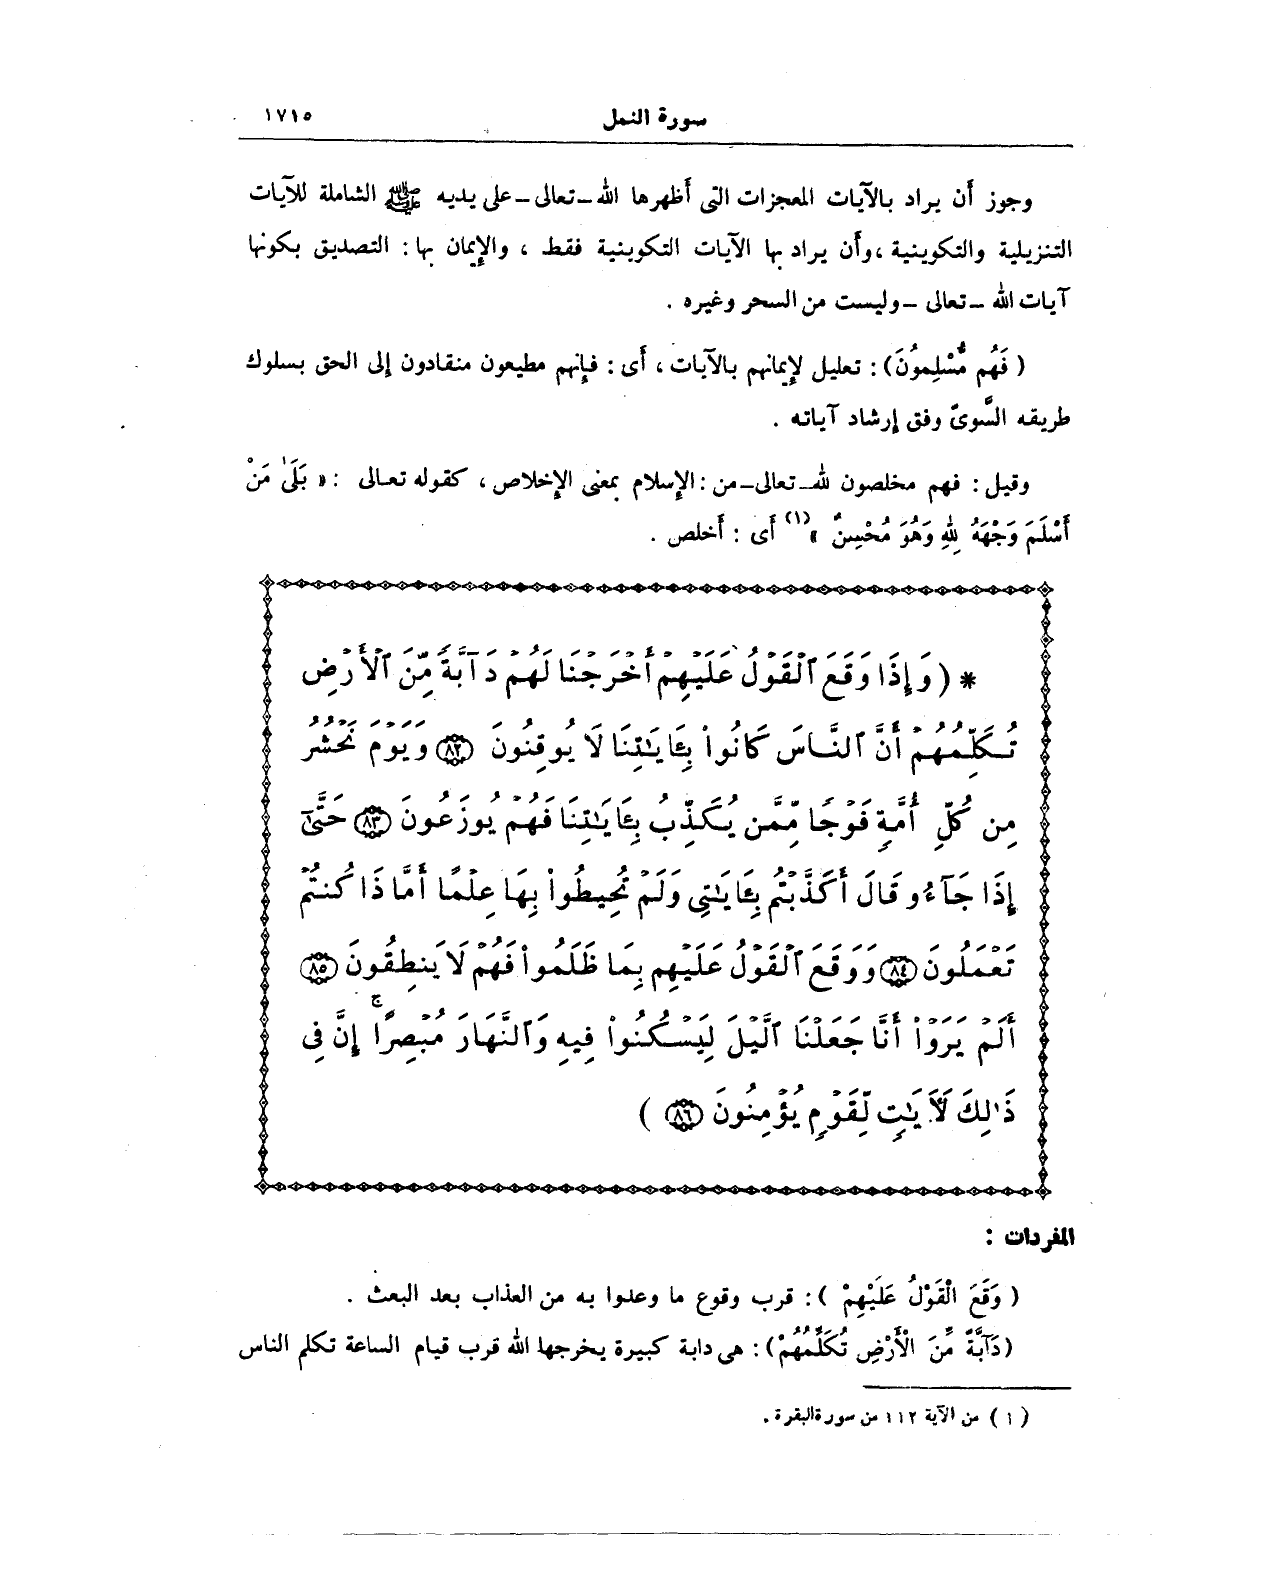 سورة النمل ١٧١٥
وجوز أن يراد بالآيات المعجزات التى أظهرها الله ـ تعالى ـ على يديه ﷺ الشاملة للآيات
التنزيلية والتكوينية ، وأن يراد بها الآيات التكوينية فقط ، والإيمان بها : التصديق بكونها
آيات الله ـ تعالى ـ وليست من السحر وغيره .
( فَهُم مُّسْلِمُونَ ) : تعليل لإيمانهم بالآيات ، أى : فإنهم مطيعون منقادون إلى الحق بسلوك
طريقه السَّوىّ وفق إرشاد آياته .
وقيل : فهم مخلصون لله ـ تعالى ـ من : الإسلام بمعنى الإخلاص ، كقوله تعالى : « بَلَىٰ مَنْ
أَسْلَمَ وَجْهَهُ لِلَّهِ وَهُوَ مُحْسِنٌ » (١) أى : أخلص .
* ( وَإِذَا وَقَعَ ٱلْقَوْلُ عَلَيْهِمْ أَخْرَجْنَا لَهُمْ دَآبَّةً مِّنَ ٱلْأَرْضِ
تُكَلِّمُهُمْ أَنَّ ٱلنَّاسَ كَانُوا۟ بِـَٔايَـٰتِنَا لَا يُوقِنُونَ ٨٢ وَيَوْمَ نَحْشُرُ
مِن كُلِّ أُمَّةٍ فَوْجًا مِّمَّن يُكَذِّبُ بِـَٔايَـٰتِنَا فَهُمْ يُوزَعُونَ ٨٣ حَتَّىٰٓ
إِذَا جَآءُو قَالَ أَكَذَّبْتُم بِـَٔايَـٰتِى وَلَمْ تُحِيطُوا۟ بِهَا عِلْمًا أَمَّاذَا كُنتُمْ
تَعْمَلُونَ ٨٤ وَوَقَعَ ٱلْقَوْلُ عَلَيْهِم بِمَا ظَلَمُوا۟ فَهُمْ لَا يَنطِقُونَ ٨٥
أَلَمْ يَرَوْا۟ أَنَّا جَعَلْنَا ٱلَّيْلَ لِيَسْكُنُوا۟ فِيهِ وَٱلنَّهَارَ مُبْصِرًا ۚ إِنَّ فِى
ذَٰلِكَ لَـَٔايَـٰتٍ لِّقَوْمٍ يُؤْمِنُونَ ٨٦ )
المفردات :
( وَقَعَ الْقَوْلُ عَلَيْهِمْ ) : قرب وقوع ما وعدوا به من العذاب بعد البعث .
( دَآبَّةً مِّنَ الْأَرْضِ تُكَلِّمُهُمْ ) : هى دابة كبيرة يخرجها الله قرب قيام الساعة تكلم الناس
( ١ ) من الآية ١١٢ من سورة البقرة .